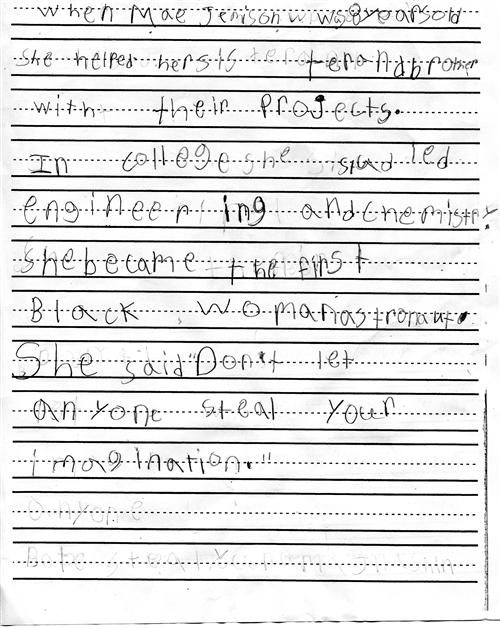 when Mae Jemison was 8 years old
she helped her sister and brother
with their projects.
In college she studied
engineering and chemistry.
She became the first
Black woman astronaut.
She said "Don't let
anyone steal your
imagination."
anyone